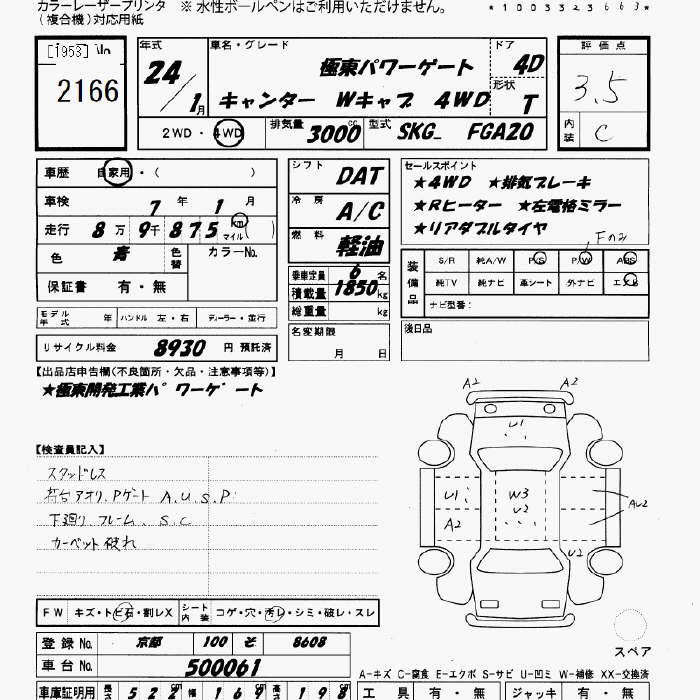 カラーレーザープリンタ ※ 水性ボールペンはご利用いただけません。
(複合機)対応用紙
*1003323663*
[1953]
2166
年式 24/1月
車名・グレード 極東パワーゲート
キャンター Wキャブ 4WD
ドア 4D
形状 T
評価点 3.5
内装 C
2WD・4WD
排気量 3000cc
型式 SKG_ FGA20
車歴 自家用・( )
車検 7年 1月
走行 8万 9千 875 km マイル ( )
色 青 色替 カラーNo.
保証書 有・無
モデル年式 年 ハンドル 左・右 ディーラー・並行
リサイクル料金 8930 円 預託済
シフト DAT
冷房 A/C
燃料 軽油
乗車定員 6 名
積載量 1850 kg
総重量 kg
名変期限 月 日
セールスポイント
★4WD ★排気ブレーキ
★Rヒーター ★左電格ミラー
★リアダブルタイヤ
Fのみ
装備品
S/R 純A/W P/S P/W ABS
純TV 純ナビ 革シート 外ナビ エアB
ナビ型番:
後日品
【出品店申告欄(不良箇所・欠品・注意事項等)】
★極東開発工業パワーゲート
【検査員記入】
スタッドレス
荷台アオリ、Pゲート A.U.S.P
下廻り、フレーム、S.C
カーペット破れ
A2 A2
U1
U1 W3
U2
A2 AU2
U2
スペア
FW キズ・トビ石・割レX シート内装 コゲ・穴・汚レ・シミ・破レ・スレ
登録No. 京都 100 そ 8608
車台No. 500061
A-キズ C-腐食 E-エクボ S-サビ U-凹ミ W-補修 XX-交換済
車庫証明用 長さ 522cm 幅 169cm 高さ 198cm
工具 有・無 ジャッキ 有・無